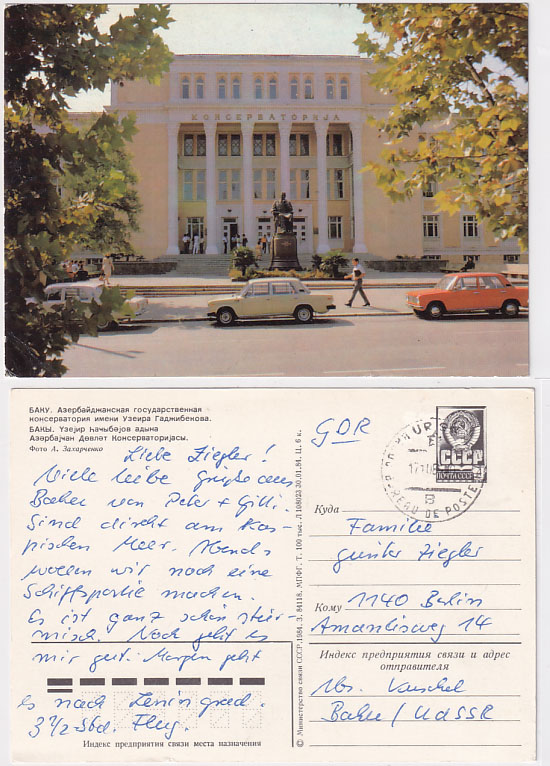 КОНСЕРВАТОРИЈА
БАКУ. Азербайджанская государственная
консерватория имени Узеира Гаджибекова.
БАКЫ. Үзејир Һаҹыбәјов адына
Азәрбајҹан Дөвләт Консерваторијасы.
Фото А. Захарченко
Liebe Ziegler!
Viele liebe Grüße aus
Baku von Peter + Gilli.
Sind direkt am Kas-
pischen Meer. Abends
wollen wir noch eine
Schiffspartie machen.
Es ist ganz schön stür-
misch. Noch geht es
mir gut. Morgen geht
es nach Leningrad.
3 1/2 Std. Flug.
Индекс предприятия связи места назначения
© Министерство связи СССР, 1984. З. 84118. МПФГ. Т. 100 тыс. Л 108023 30.01.84. Ц. 6 к.
GDR
СССР
BUREAU DE POSTE
Куда
Familie
Günter Ziegler
Кому
1140 Berlin
Amantisweg 14
Индекс предприятия связи и адрес
отправителя
Abs.
Baku / UdSSR